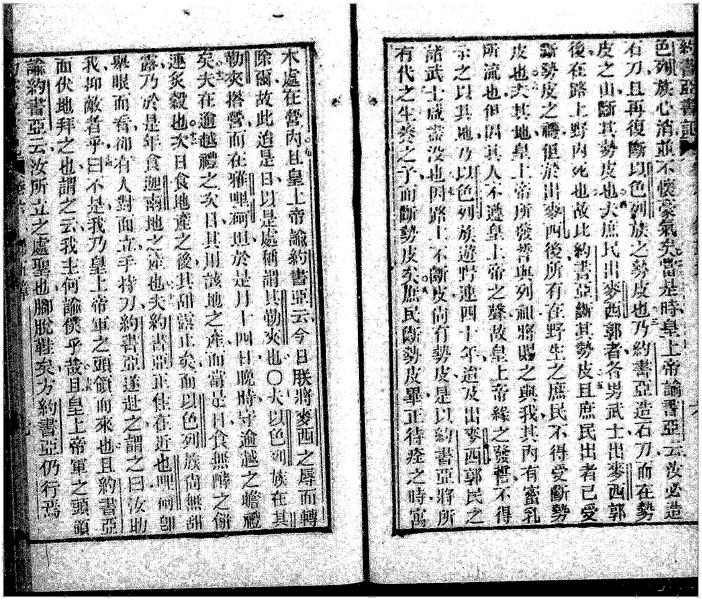 約書亞書記
色列族心消並不懷豪氣矣當是時皇上帝諭書亞云汝必造
石刀且再復斷以色列族之勢皮也乃約書亞造石刀而在勢
皮之山斷其勢皮也夫庶民出麥西郭者各男武士出麥西郭
後在路上野內死也故此約書亞斷其勢皮且庶民出者已受
斷勢皮之禮但於出麥西後所有在野生之庶民不得受斷勢
皮也夫其地皇上帝所發誓與列祖將賜之與我其內有蜜乳
所流也但因其人不遵皇上帝之聲故皇上帝緣之發誓不得
示之以其地乃以色列族遊野連四十年迨及出麥西郭民之
諸武士咸盡沒也因路上不斷皮尚有勢皮是以約書亞將所
有代之生養之子而斷勢皮矣庶民斷勢皮畢正待痊之時寓
本處在營內且皇上帝諭約書亞云今日朕將麥西之辱而轉
除爾故此迨是日以是處稱謂其勒夾也〇夫以色列族在其
勒夾搭營而在耶哩坷坦於是月十四日晚時守逾越之瞻禮
矣夫在逾越禮之次日其用該地之產而當是日食無酵之餅
連炙穀也次日食地產之後其甜露止矣而以色列族尚無甜
露乃於是年食迦南地之產也夫約書亞正住在近也哩坷卽
舉眼而看卻有人對面立手持刀約書亞遂赴之謂之曰汝助
我抑敵者乎曰不是我乃皇上帝軍之頭領而來也且約書亞
面伏地拜之也謂之云我主何諭僕乎哉且皇上帝軍之頭領
諭約書亞云汝所立之處聖也腳脫鞋矣方約書亞仍行焉